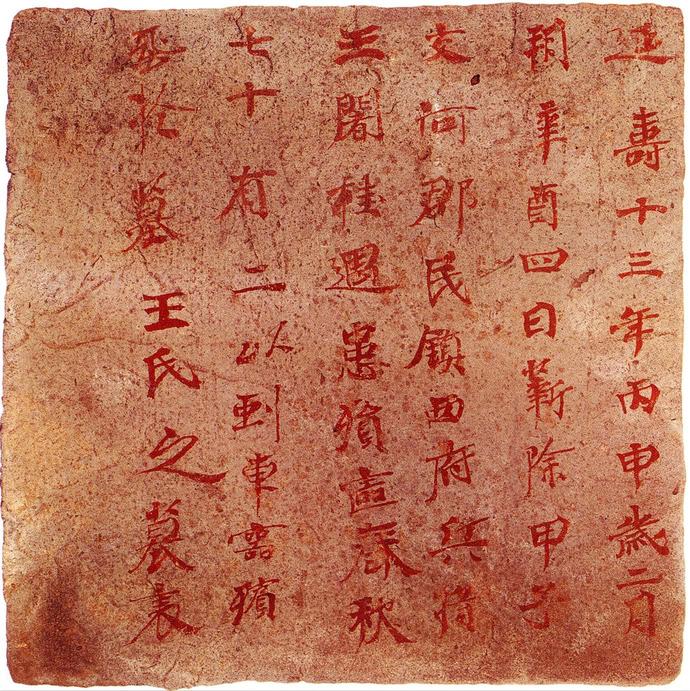 延壽十三年丙申歲二月
朔辛酉四日蘄除甲子
交河郡民鎮西府兵將
王闍桂遇患殞喪春秋
七十有二以到車客殯
葬於墓王氏之墓表